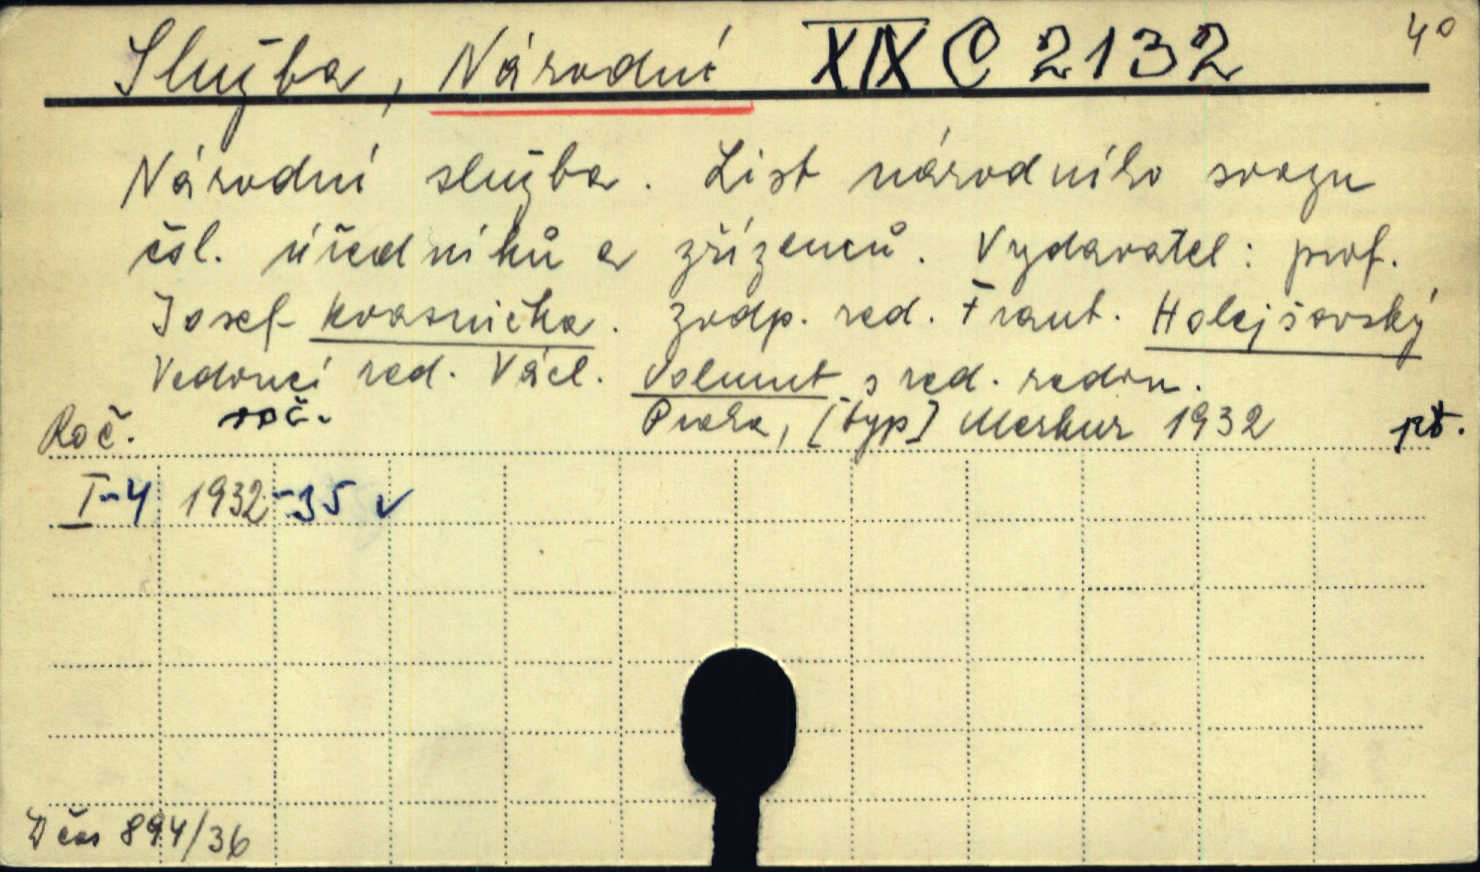 Služba, Národní XIX C 2132 4°
Národní služba. List národního svazu
čsl. úředníků a zřízenců. Vydavatel: prof.
Josef Kvasnička. Zodp. red. Frant. Holejšovský
Vedoucí red. Václ. s red. radou.
roč. Praha, [typ] Merkur 1932 př.
Roč.
I-4 1932-35 v
D čas 894/36